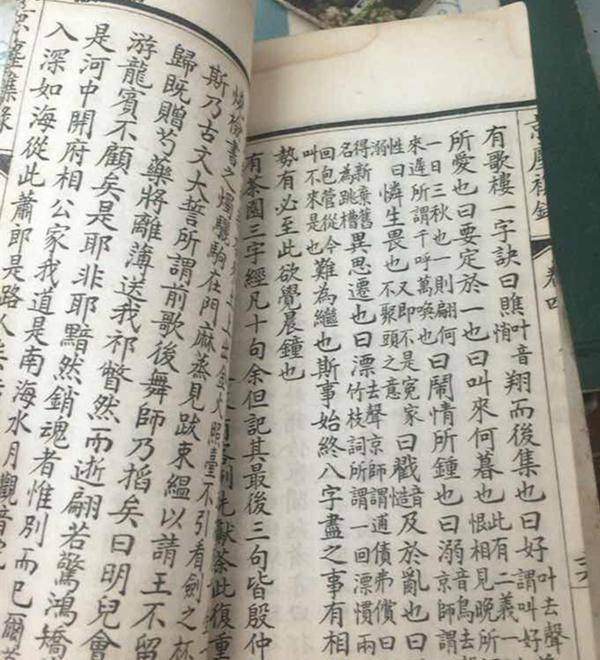 京塵雜錄 卷四
有歌樓一字訣曰瞧叶音悄翔而後集也曰好叶去聲謂叫好
所愛也曰要定於一也曰叫來何暮也此有二義一恨相見晚所
一日三秋也一則翩何來遲所謂千呼萬喚也曰鬧情所鍾也曰溺音鳥去京師謂
性曰憐生畏也又即不是冤家不聚頭之意曰戳及於亂也曰
得新棄舊名為跳槽異思遷也曰漂去聲京師謂逋債弗償曰竹枝詞所謂一回漂慣兩
回包管從今叫不來是也難為繼也斯事始終八字盡之事有相
勢有必至此欲覺晨鐘也
有茶園三字經凡十句余但記其最後三句皆殷仲
獻茶此復重
上出金大照臺不引看劍之杯
燒檜書之燭驪駒在門麻蒸見跋束縕以請王不留
斯乃古文大誓所謂前歌後舞師乃搯矣曰明兒會
歸既贈芍藥將離薄送我祁瞥然而逝翩若驚鴻矯
游龍賓不顧矣是耶非耶黯然銷魂者惟別而已爾
是河中開府相公家我道是南海水月觀音院
入深如海從此蕭郎是路人
京塵雜錄